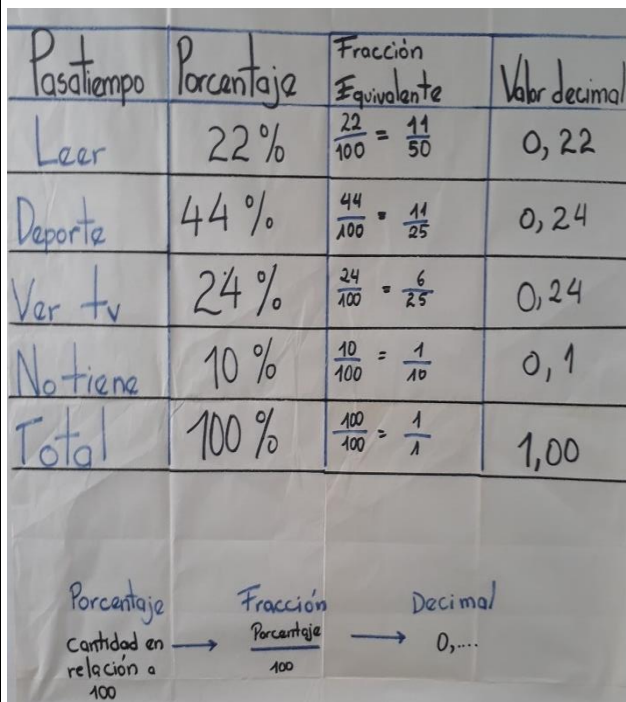 Pasatiempo Porcentaje Fracción Equivalente Valor decimal
Leer 22% 22/100 = 11/50 0,22
Deporte 44% 44/100 = 11/25 0,24
Ver tv 24% 24/100 = 6/25 0,24
No tiene 10% 10/100 = 1/10 0,1
Total 100% 100/100 = 1/1 1,00
Porcentaje Fracción Decimal
Cantidad en relación a 100 → Porcentaje/100 → 0,....